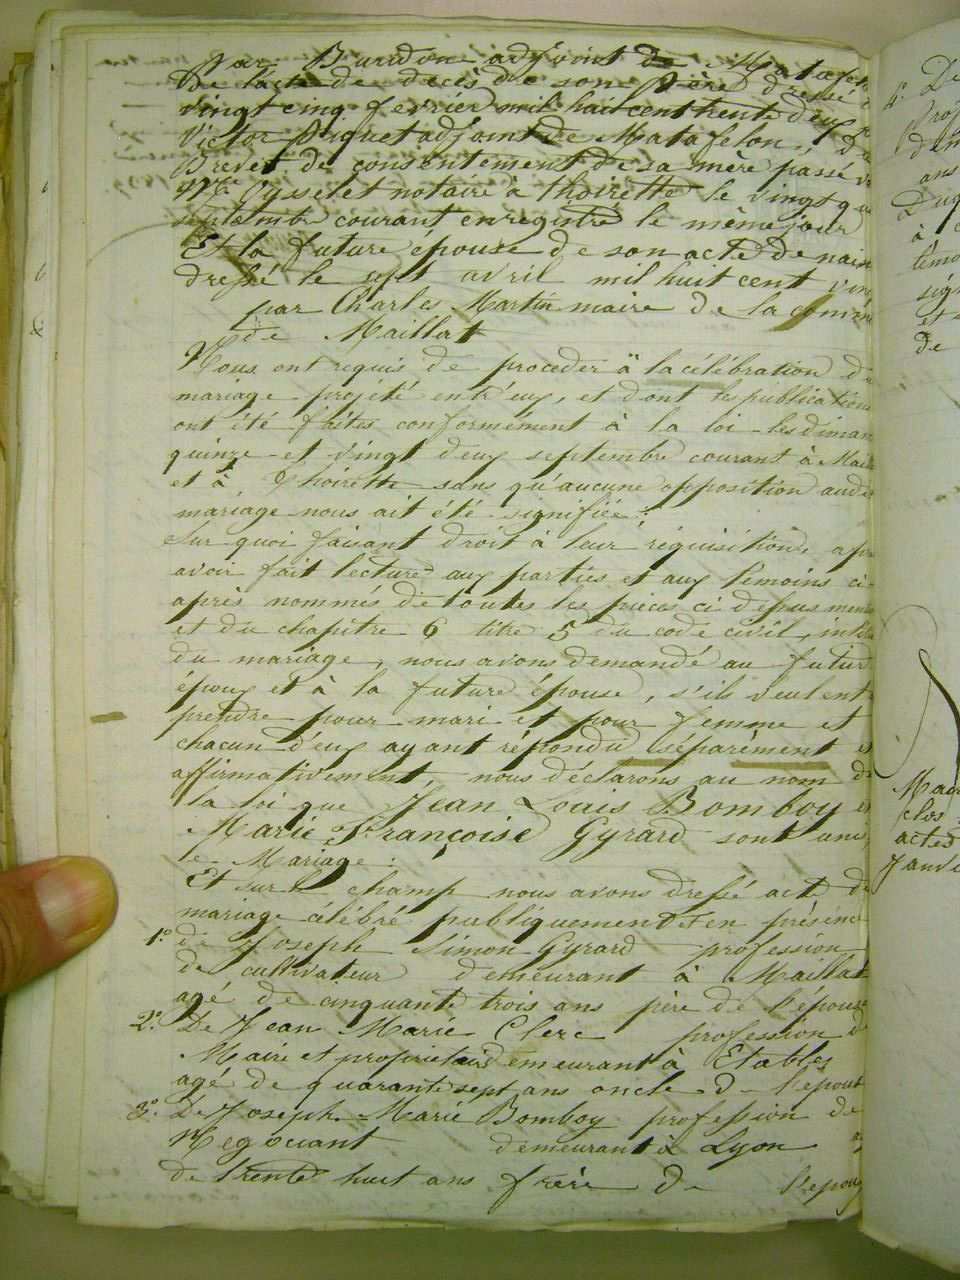 par Burdon adjoint de Matafel
De l'acte de décès de son Père dressé
vingt cinq fevrier mil huit cent trente deux
Victor Piquet adjoint de Matafelon, De
Brevet de consentement de sa mère passé
Mtre Oysselet notaire à thoirette le vingt qua
septembre courant enregistré le même jour
Et la future epouse de son acte de nais
dressé le sept avril mil huit cent vin
par Charles Martin maire de la commu
de Maillat
Nous ont requis de proceder à la célébration du
mariage projeté entr'eux, et dont les publication
ont été faites conformément à la loi les diman
quinze et vingt deux septembre courant à Mail
et à Thoirette sans qu'aucune opposition audit
mariage nous ait été signifiée :
Sur quoi faisant droit à leur réquisition, apr
avoir fait lecture aux parties et aux témoins ci-
après nommés de toutes les pièces ci dessus ment
et du chapitre 6 titre 5 du code civil, intitu
du mariage, nous avons demandé au futur
époux et à la future épouse, s'ils veulent
prendre pour mari et pour femme et
chacun d'eux ayant répondu séparément et
affirmativement, nous déclarons au nom de
la loi que Jean Louis Bomboy et
Marie Françoise Gyrard sont unis
le Mariage :
Et sur le champ nous avons dressé acte de
mariage célébré publiquement en présenc
1.° de Joseph Simon Gyrard profession
de cultivateur demeurant à Maillat
agé de cinquante trois ans père de l'épouse
2.° De Jean Marie Clerc profession de
Maire et proprietaire demeurant à Etables
agé de quarante sept ans oncle de l'epouse
3.° De Joseph Marie Bomboy profession de
Negociant demeurant à Lyon
de trente huit ans frère de l'epoux
4.° De
prof
dem
ans
Dug
à
témo
sign
et
de
Mar
clos
actes
Janvi